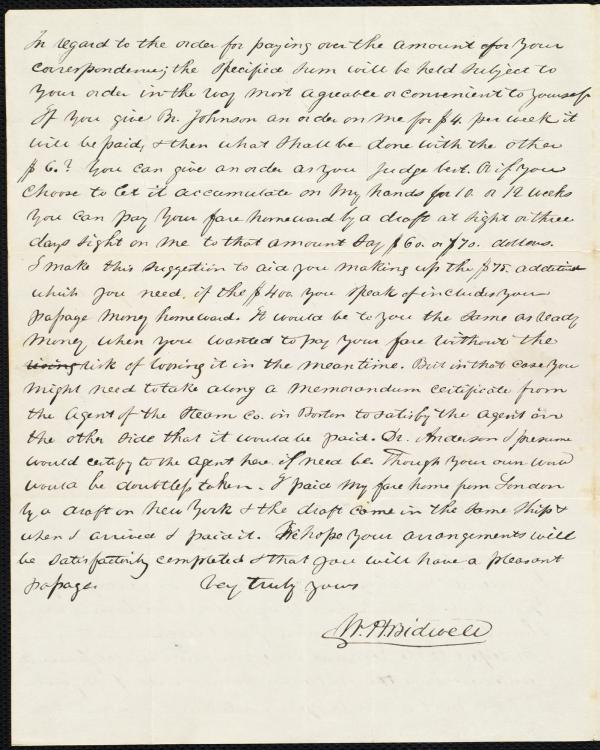 In regard to the order for paying over the amount for your
correspondence, the specified sum will be held subject to
your order in the way most agreable or convenient to yourself.
If you give Mr. Johnson an order on me for $4. per week it
will be paid, & then what shall be done with the other
$6.? You can give an order as you judge best. Or if you
choose to let it accumulate on my hands for 10 or 12 weeks
you can pay your fare homeward by a draft at sight or three
days sight on me to that amount say $60. or $70. dollars.
I make this suggestion to aid you making up the $75. additional
which you need, if the $400 you speak of includes your
passage money homeward. It would be to you the same as ready
money when you wanted to pay your fare without the
risk of loosing it in the meantime. But in that case you
might need to take along a memorandum certificate from
the Agent of the Steam Co. in Boston to satisfy the Agent on
the other side that it would be paid. Dr. Anderson I presume
would certify to the Agent here if need be. Though your own word
would be doubtless taken. I paid my fare home from London
by a draft on New York & the draft came in the same ship &
when I arrived I paid it. I hope your arrangements will
be satisfactorily completed & that you will have a pleasant
passage. Very truly yours
W. H. Bidwell